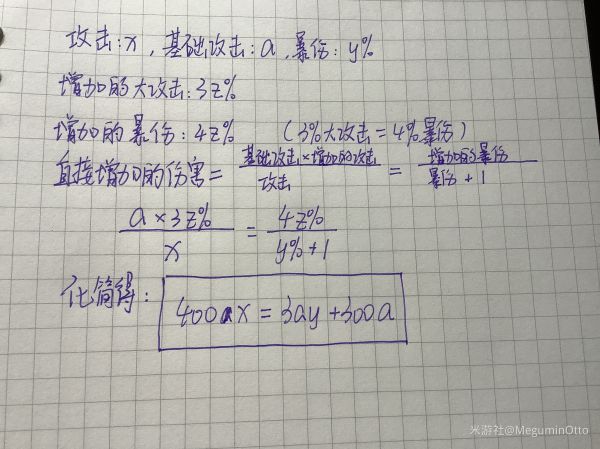 攻击:x,基础攻击:a,暴伤:y%
增加的大攻击:3z%
增加的暴伤:4z% (3%大攻击=4%暴伤)
直接增加的伤害=基础攻击×增加的攻击/攻击=增加的暴伤/暴伤+1
a×3z%/x=4z%/y%+1
化简得:400x=3ay+300a
米游社@MeguminOtto